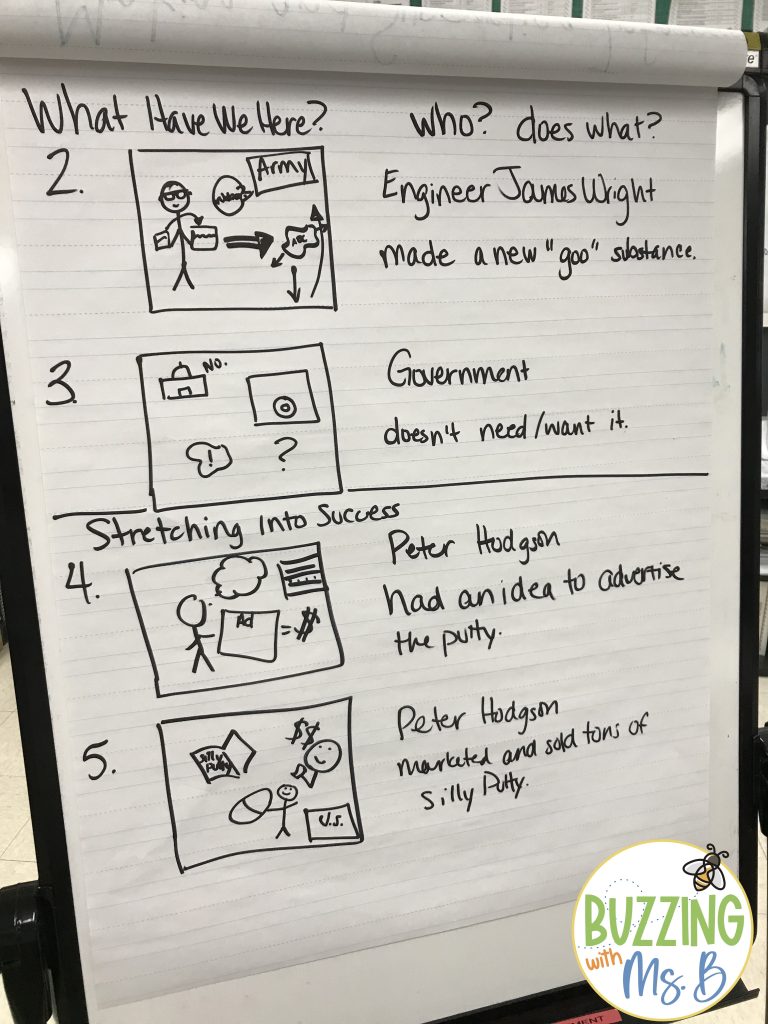 What Have We Here? who? does what?
2. Army Engineer James Wright
made a new "goo" substance.
3. NO. Government
! ? doesn't need/want it.
Stretching Into Success
4. Peter Hodgson
had an idea to advertise
Ad = $ the putty.
5. Peter Hodgson
$$ marketed and sold tons of
Silly Putty Silly Putty.
U.S.
BUZZING
with Ms. B